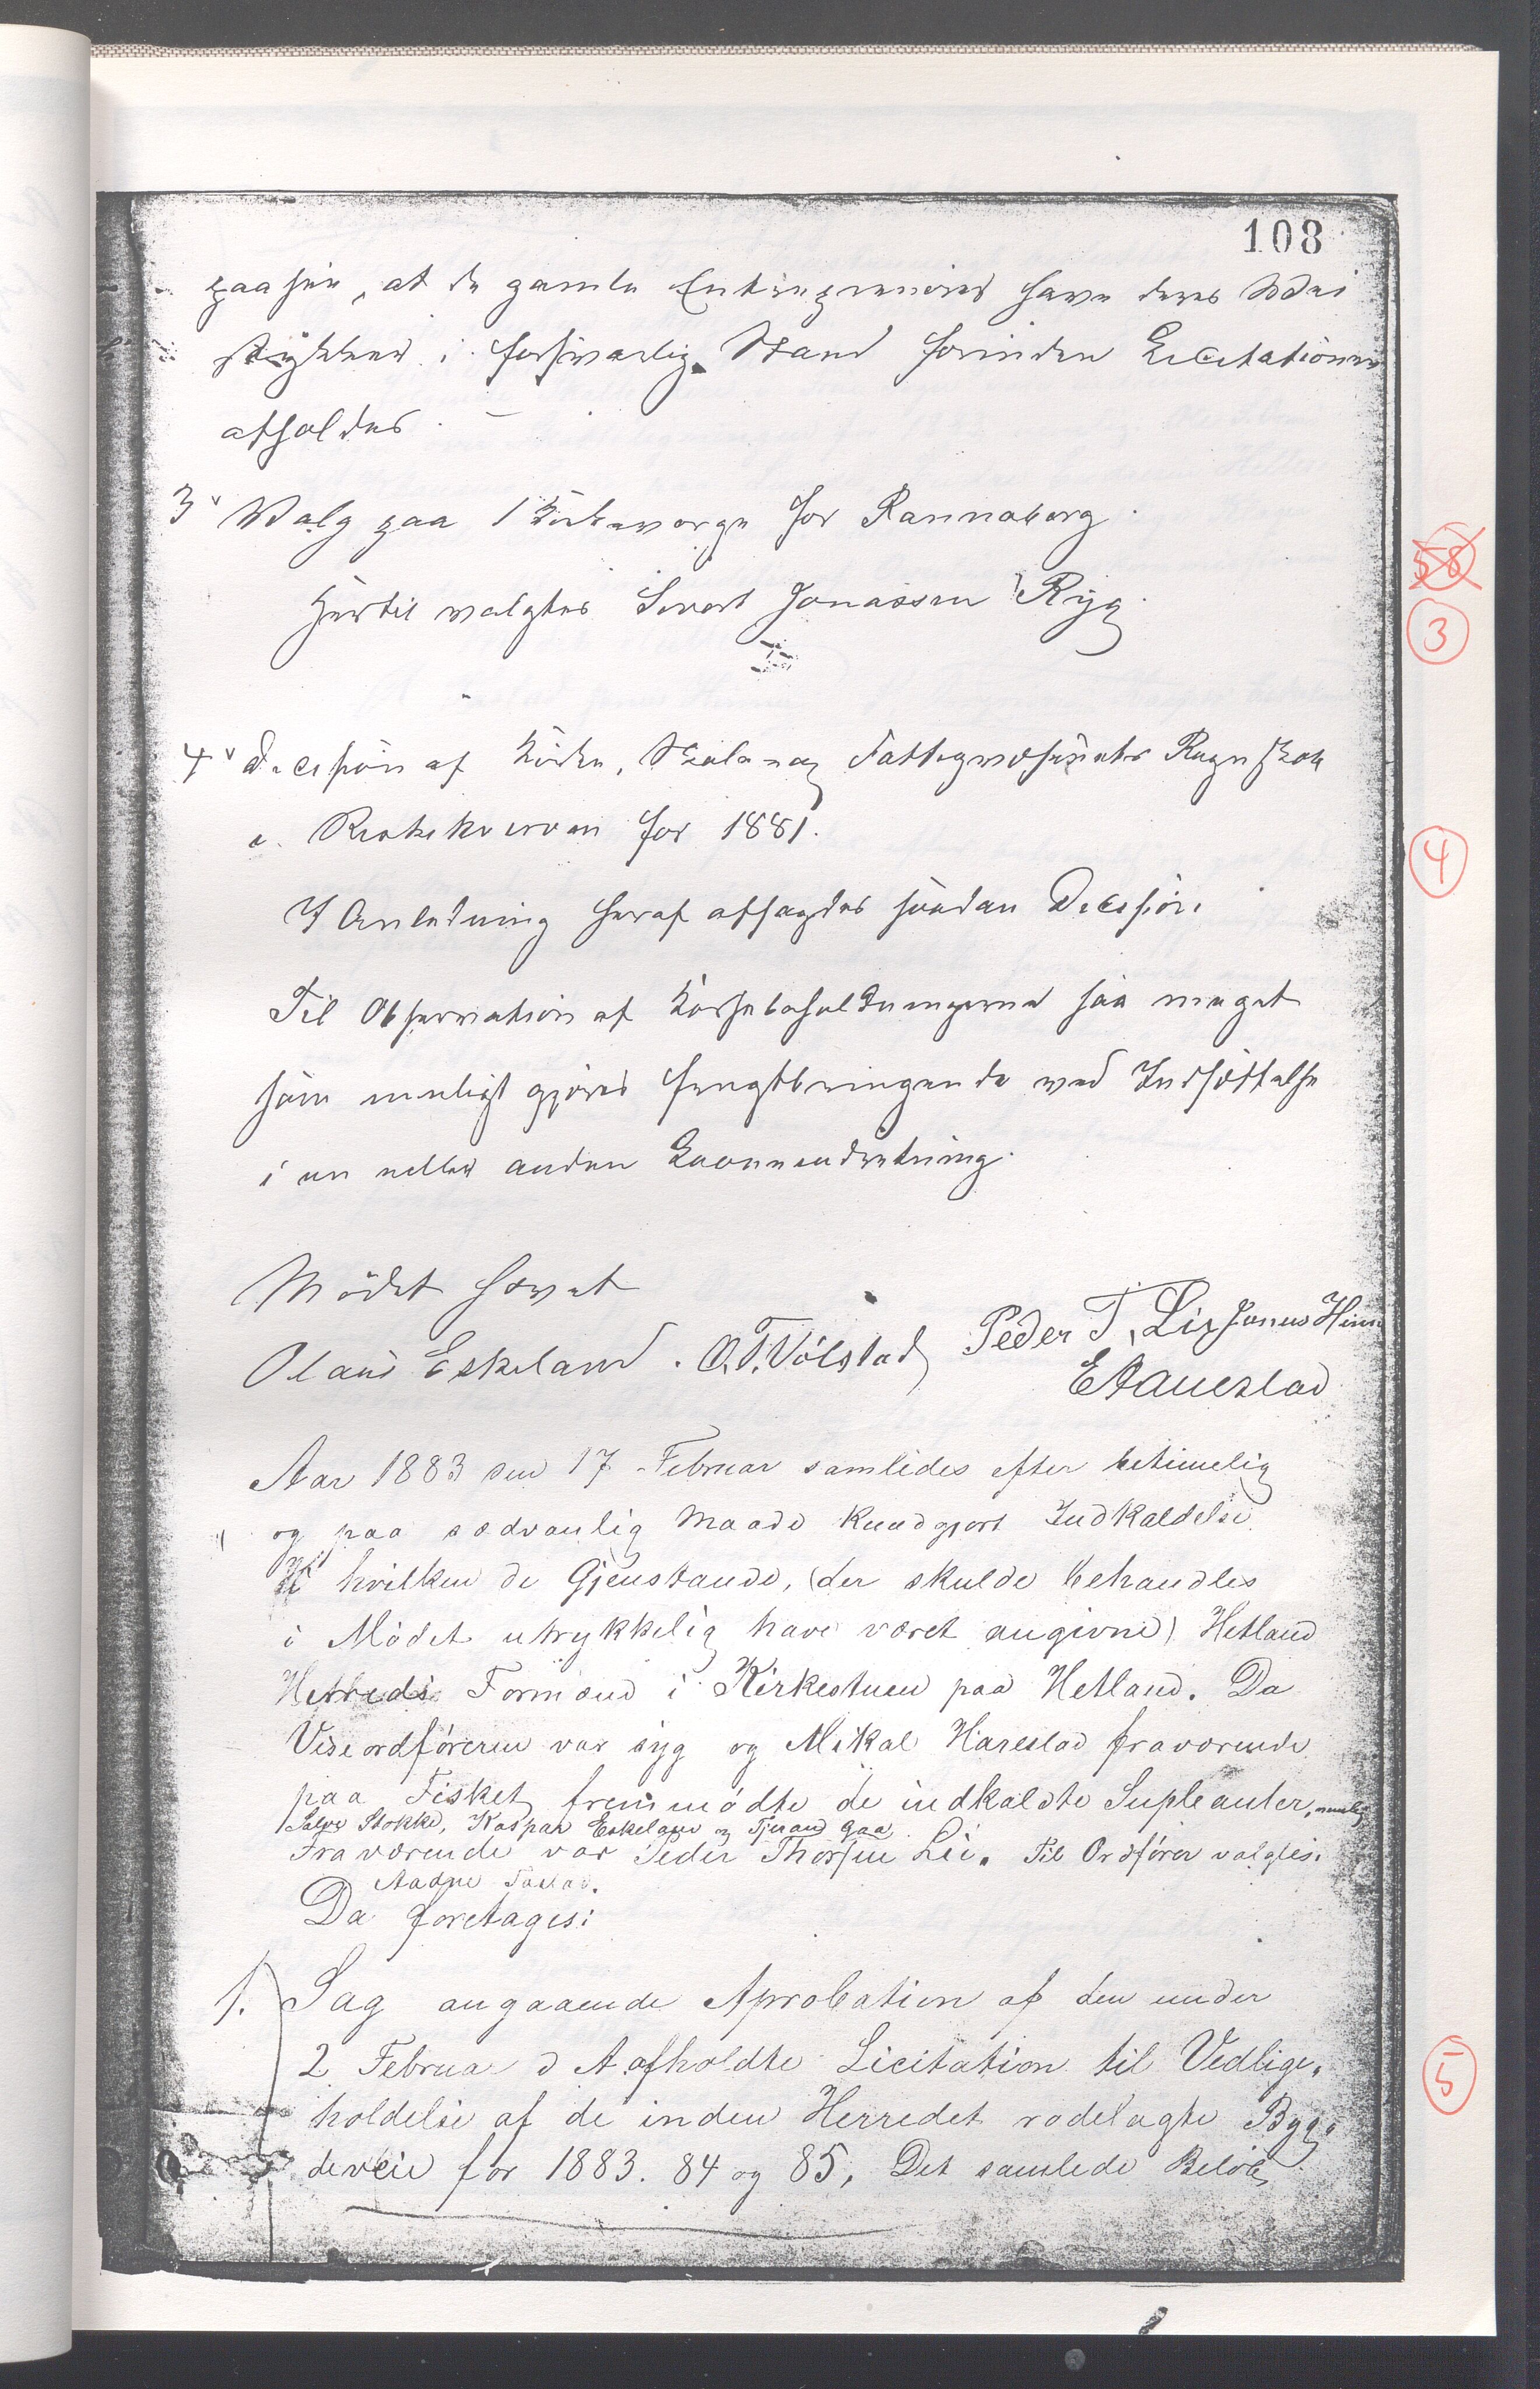 108
paase, at de gamle Entreprenører have deres Wei
stykker i forsvarlig Stand forinden Licitationen
afholdes.
3 Valg paa 1 Kirkeværge for Rannaberg.
Hertil valgtes Sivert Jonassen Ryg.
58
3
4 Decision af Kirke, Skole og Fattigvæsenets Regnskab
for 1881.
4
I Anledning heraf afsagdes saadan Decision
Til Observation at Kassebeholdningerne saa meget
som muligt gjøres frugtbringende ved Indsættelse
i en eller anden Laaneindretning.
Mødet hævet
Olaus Eskeland. O.T. Völstad Peder T. Lie Jonas Hinna
E Haueslad
Aar 1883 den 17 Februar samledes efter betimelig
og paa sædvanlig Maade kundgjort Indkaldelse
i hvilken de Gjenstande, (der skulde behandles
i Mødet utrykkelig have været angivne) Hetland
Herreds Formænd i Kirkestuen paa Hetland. Da
Viseordføreren var syg og Mikal Hareslad fraværende
paa Fisket, fremmødte de indkaldte Supleanter, nemlig
Salve Stokke, Kaspar Eskeland og Tjerand Gaa
Fraværende var Peder Thorsen Lie. Til Ordfører valgtes:
Aadne
Da foretages:
1. Sag angaaende Aprobation af den under
2 Februa d A afholdte Licitation til Vedlige,
holdelse af de inden Herredet rodelagte Byg,
deveie for 1883. 84 og 85, Det samlede Beløb,
5